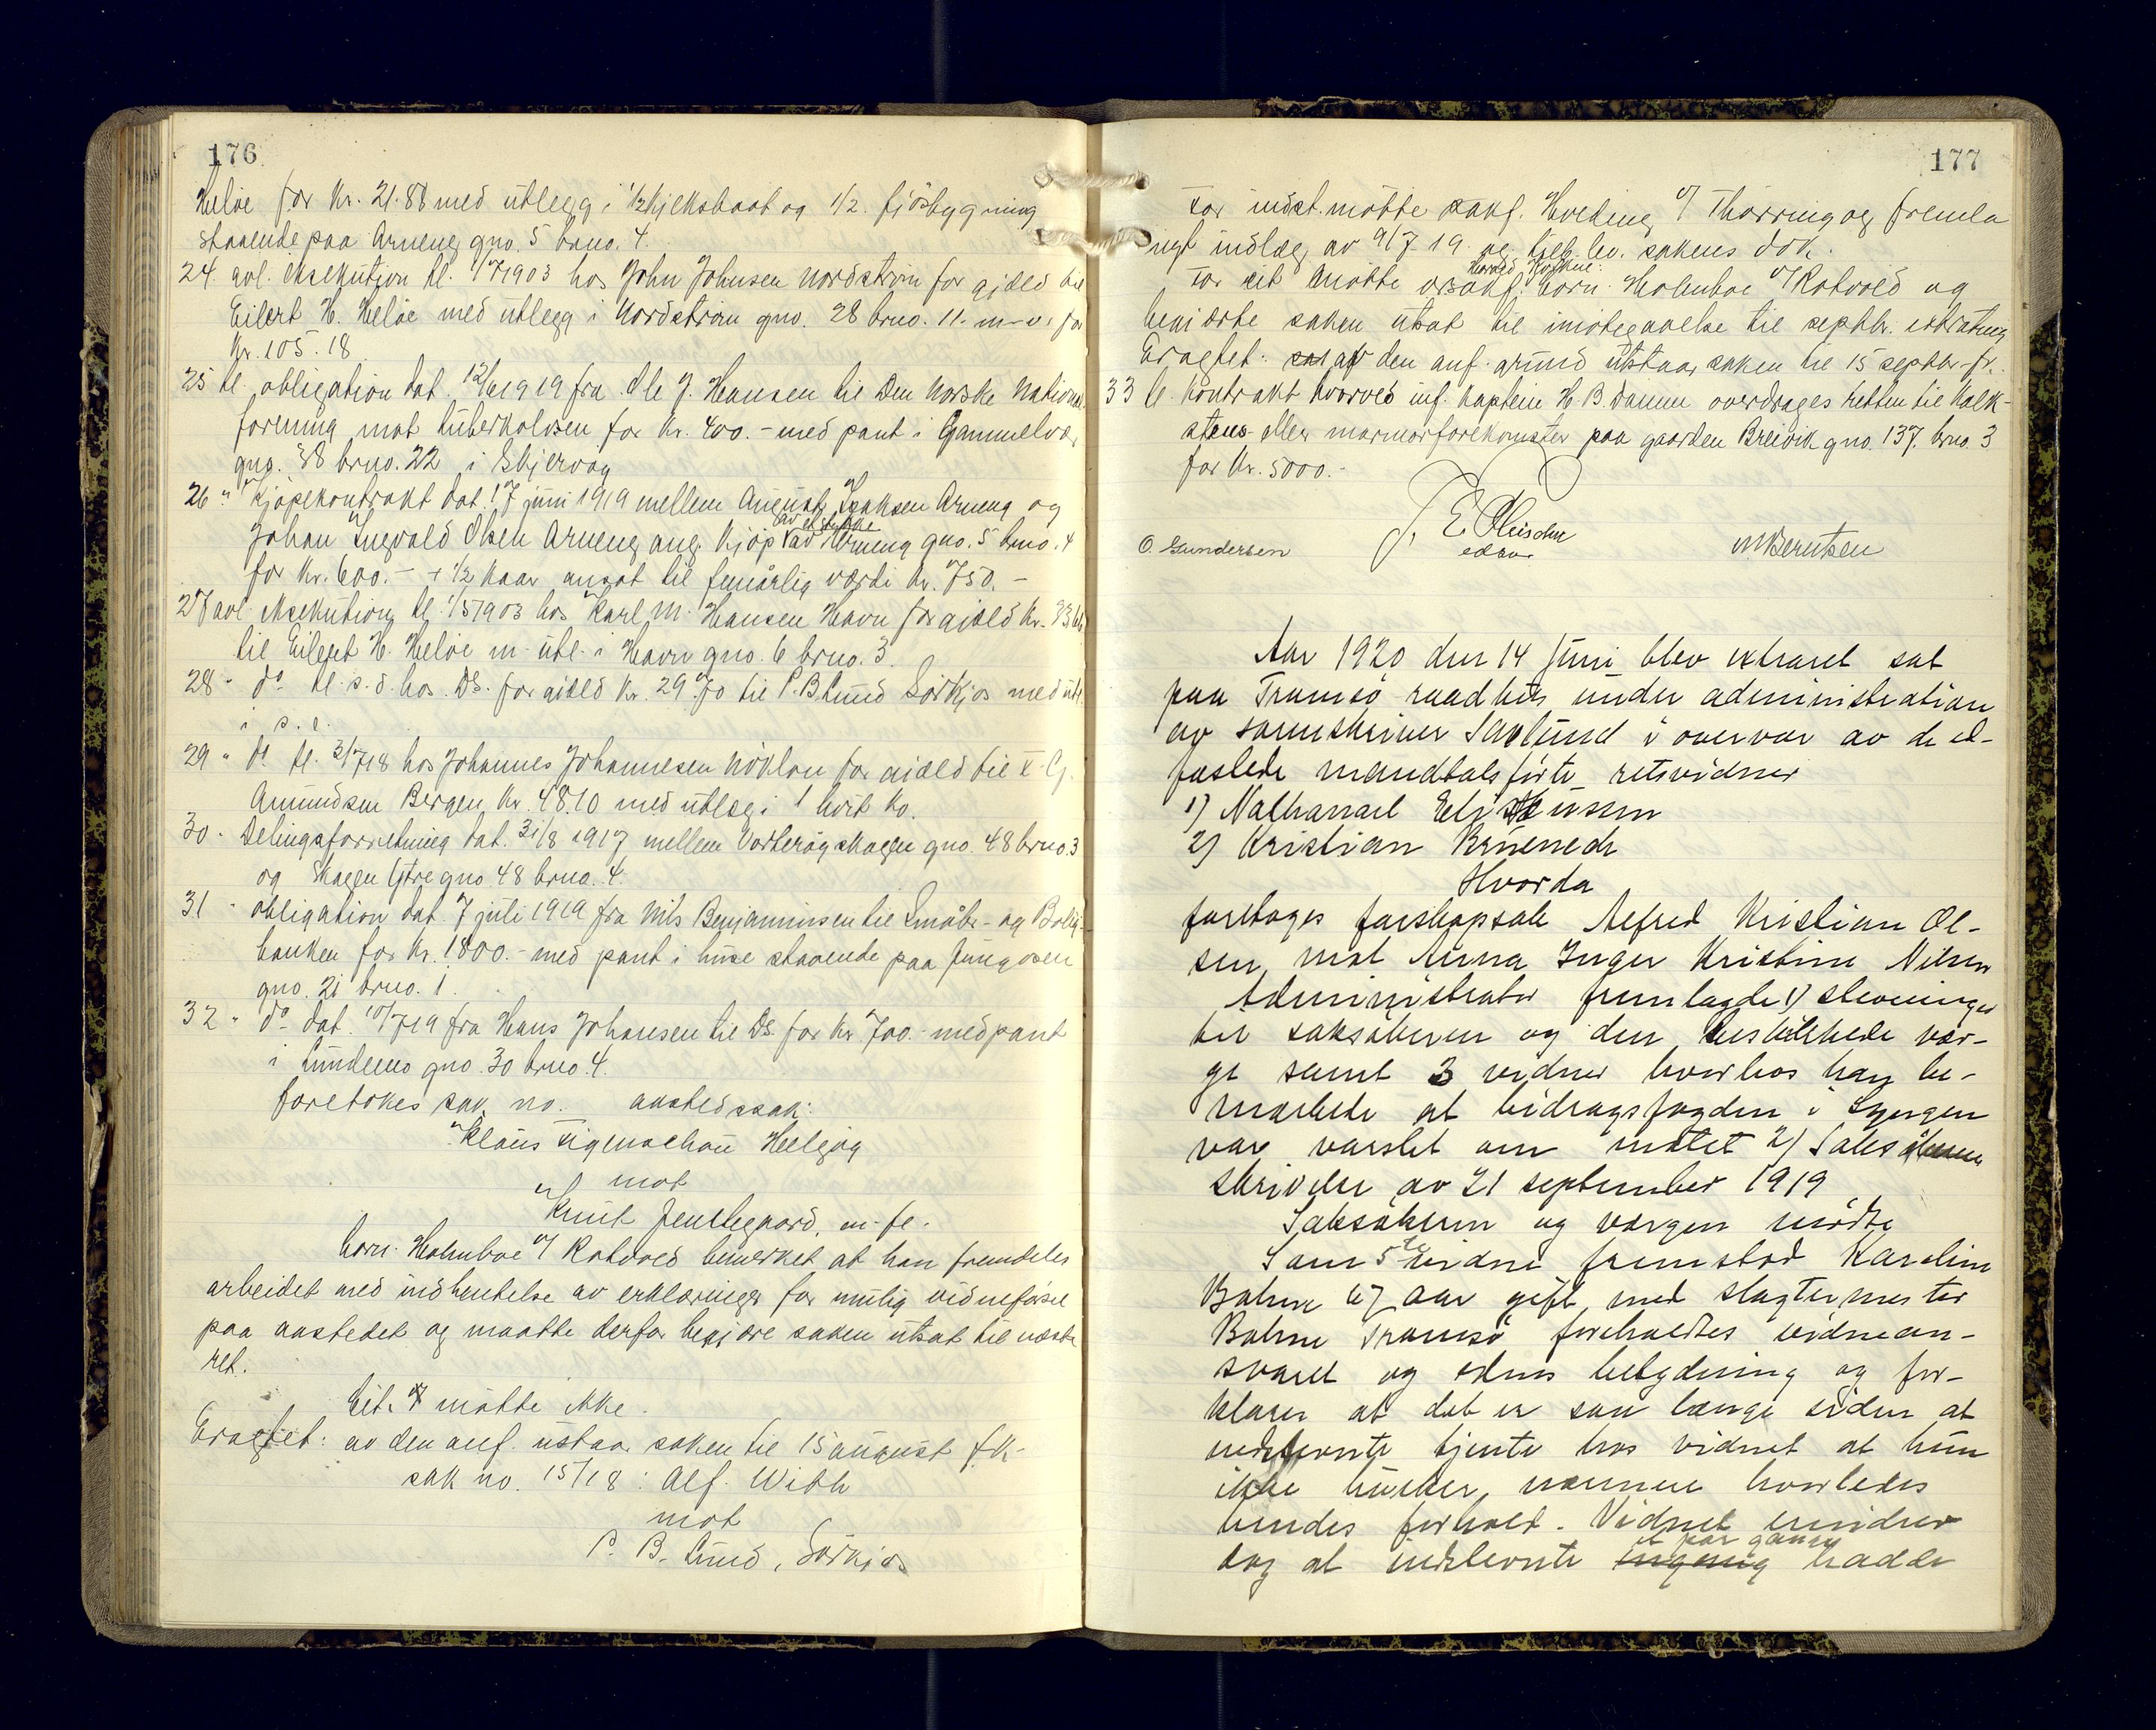 176
Heløe for kr. 21.88 med utlegg i 1/2 kjeksbaat og 1/2 fjøsbygning
staaende paa Arneng gno. 5 brno. 4.
24. avl. eksekution tl. 1/7 1903 hos John Johnsen Nordstrøm for gjæld til
Eilert H. Heløe med utlegg i Nordstrøm gno. 28 brno. 11. m-v. for
Kr. 105.18
25 tl. obligation dat. 12/6 1919 fra Ole J. Hansen til Den Norske National
forening mot tuberkulosen for kr. 400.- med pant i Gammelvær
gno. 38 brno. 22 i Skjervøy
26 " Kjøpekontrakt dat. 17 juni 1919 mellem August Isaksen Arneng og
Johan Ingvald Olsen Arneng ang. kjøp av et stykke av Arneng gno. 5 brno. 4
for kr. 600.- + 1/2 kaar ansat til femårlig værdi kr. 750.-
27 avl. eksekution tl. 1/5 1903 hos Karl M. Hansen Havn for gjæld kr. 33.66
til Eilert H. Heløe m. utl. i Havn gno. 6 brno. 3.
28 " do tl. s.d. hos Ds. for gjæld kr. 29.70 til P. B. Lund Sørkjos med utl.
i s. e.
29 " do tl. 3/7 18 hos Johannes Johannesen Nøklan for gjæld til K. G.
Amundsen Bergen kr. 48.10 med utlæg i 1 hvit ko.
30 - Delingsforretning dat. 31/8 1917 mellem Vorterøyskagen gno. 48 brno. 3
og Skagen Ytre gno 48 brno. 4.
31 - obligation dat. 7 juli 1919 fra Nils Benjaminsen til Småbr- og Bolig-
banken for kr. 1800.- med pant i huse staaende paa
gno. 21 brno. 1.
32 " do dat. 10/7 19 fra Hans Johansen til Ds. for kr 700.- med pant
i Lundenes gno. 30 brno. 4.
foretokes sak no. aastedssak:
Klaus Figenschau Heeløy
mot
Knut Jensegaard, m-fl.
horn. Holmboe v/ Rotvold bemerket at han fremdeles
arbeidet med indhentelse av erklæringer for mulig vidneførsel
paa aastedet og maatte derfor begjære saken utsat til næste
ret.
Cit. møtte ikke.
Eragtet: av den anf. utstaar saken til 15 august f.k.-
sak no. 15/18: Alf. With
mot
P. B. Lund, Sørkjos
177
For indst. møtte sakf. Hveding v/ Thorring og fremla
ingt indlæg av 9/7 19 og tilb. lev. sakens dok.
For cit møtte orsakf. horn. Holmboe v/ Rotvold og
begjærte saken utsat til imøtegaaelse til septbr. extrating
Eragtet: av den anf. grund utstaar saken til 15 septbr. fk.
33 tl. kontrakt hvorved inf. kaptein H. B. Damm overdrages retten til kalk-
stens- eller marmorforekomster paa gaarden Breivik gno. 137. brno. 3
for kr. 5000.-
O Gundersen
edsvor
M Berntsen
Aar 1920 den 14 juni blev extraret sat
paa Tromsø raadhus under administration
av sorenskriver Savlund i overvær av de ed-
fæstede mandtalsførte retsvidner
1) Nathanael
2) Kristian Brunech
Hvorda
foretoges farskapsak Alfred Kristian Ol-
sen mot Anna Inger Kristine Nilsen
Administrator fremlagde 1) stevninger
til saksøkeren og den beskikkede vær-
ge samt 3 vidner hvorhos han be-
merkede at bidragsfogden i Lyngen
var varslet om møtet 2) Saksøkerens
skrivelse av 21 september 1919
Saksøkeren og vergen mødte
Som 5te vidne fremstod Karoline
Bohne 67 aar gift med slagtermester
Bohne Tromsø foreholdtes vidnean-
svaret og edens betydning og for-
klarer at det er saa længe siden at
indstevnte tjente hos vidnet at hun
ikke husker nærmere hvorledes
hendes forhold. Vidnet erindrer
dog at indstevnte et par gange hadde